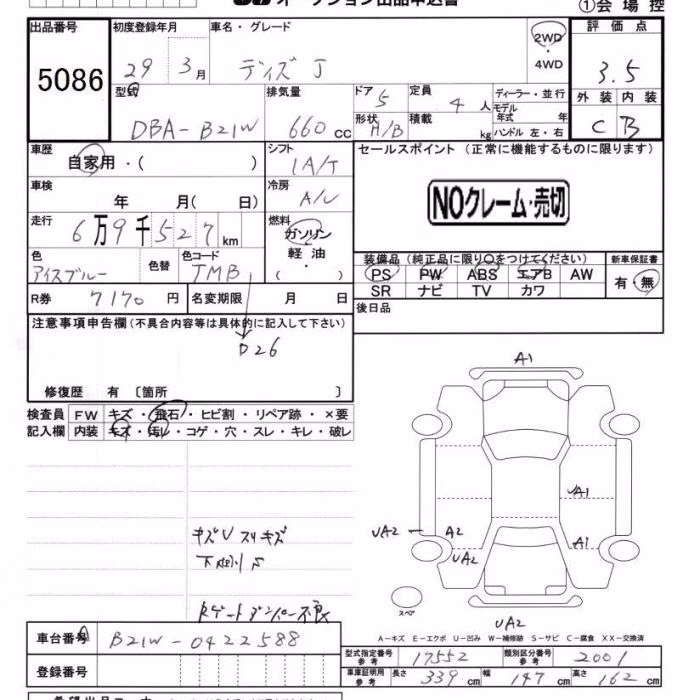 オークション出品申込書
①会場控
出品番号 初度登録年月 車名・グレード 評価点
5086 29 3月 デイズ J 2WD・4WD 3.5
型式 排気量 ドア 5 定員 4人 ディーラー・並行 外装 内装
DBA-B21W 660cc 形状 H/B 積載 kg モデル年式 年 ハンドル 左・右 C B
車歴 自家用・( ) シフト IA/T セールスポイント (正常に機能するものに限ります)
車検 年 月( 日) 冷房 A/C
NOクレーム・売切
走行 6万9千527km 燃料 ガソリン 軽油 ( )
色 アイスブルー 色替 色コード JMB
装備品 (純正品に限り○をつけてください) 新車保証書
PS PW ABS エアB AW 有・無
SR ナビ TV カワ
R券 7170円 名変期限 月 日 後日品
注意事項申告欄(不具合内容等は具体的に記入して下さい)
D26
修復歴 有 〔箇所 〕
検査員 FW キズ・飛石・ヒビ割・リペア跡・×要
記入欄 内装 キズ・汚レ・コゲ・穴・スレ・キレ・破レ
A1
UA1
UA2 A2 A1
UA2
キズU スリキズ
スペア
UA2
A-キズ E-エクボ U-凹み W-補修跡 S-サビ C-腐食 XX-交換済
車台番号 B21W-0422588
型式指定番号 参考 17552 類別区分番号 参考 2001
登録番号 車庫証明用 参考 長さ 339cm 幅 147cm 高さ 162cm